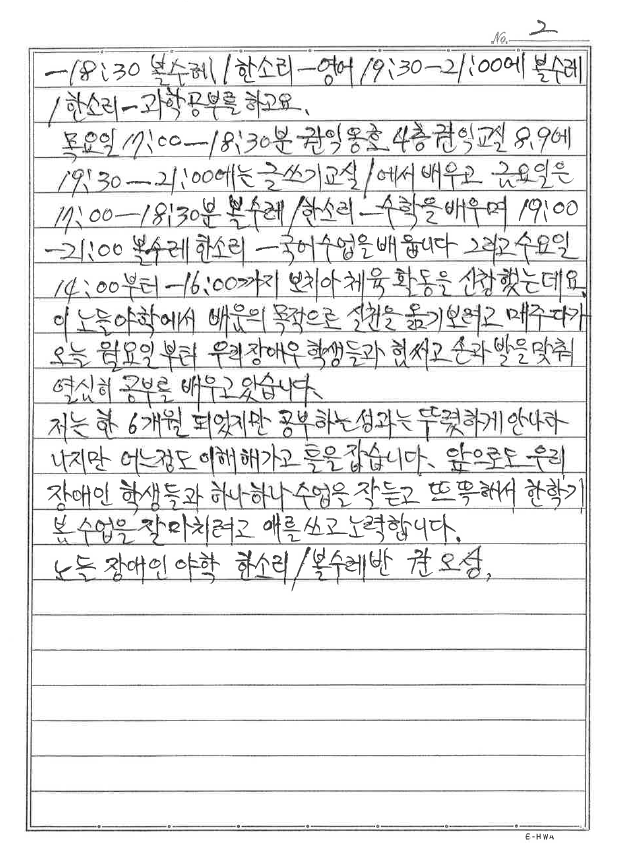 No. 2
-18:30 불수레/한소리-영어 19:30-21:00에 불수레
/한소리-과학공부를 하고요.
목요일 17:00-18:30분 권익옹호 4층권익교실 8,9에
19:30-21:00에는 글쓰기교실/에서 배우고 금요일은
17:00-18:30분 불수레/한소리-수학을 배우며 19:00
-21:00 불수레한소리-국어수업을 배웁니다 그리고 수요일
14:00부터-16:00까지 보치아 체육 활동을 신청했는데요.
이 노들야학에서 배움의 목적으로 실천을 옮기보려고 매주다가
오늘 월요일부터 우리장애우학생들과 힘써고 손과 발을맞춰
열심히 공부를 배우고있습니다.
저는 한 6개월 되었지만 공부하는성과는 뚜렷하게 안나타
나지만 어느정도 이해해가고 틀을 잡습니다. 앞으로도 우리
장애인 학생들과 하나하나 수업을 잘듣고 또똑해서 한학기
봄 수업을 잘마치려고 애를 쓰고 노력합니다.
노들 장애인야학 한소리/불수레반 권오상,
E-HWA